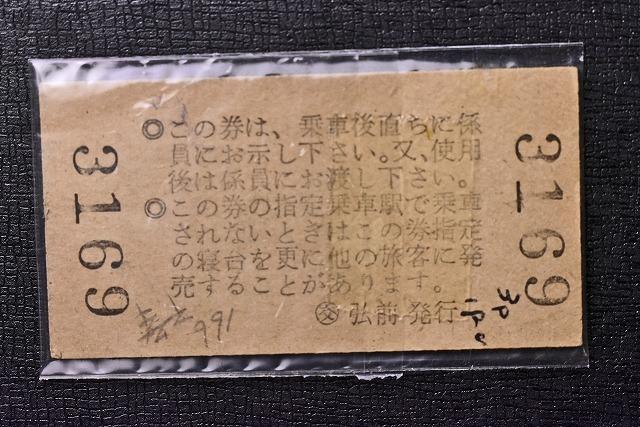 ◎この券は、乗車後直ちに係
員にお示し下さい。又、使用
後は係員にお渡し下さい。
◎この券の指定乗車駅で乗車
されないときはこの券指定
の寝台を更に他の旅客に発
売することがあります。
㊋弘前発行
3169
3169
991
3P